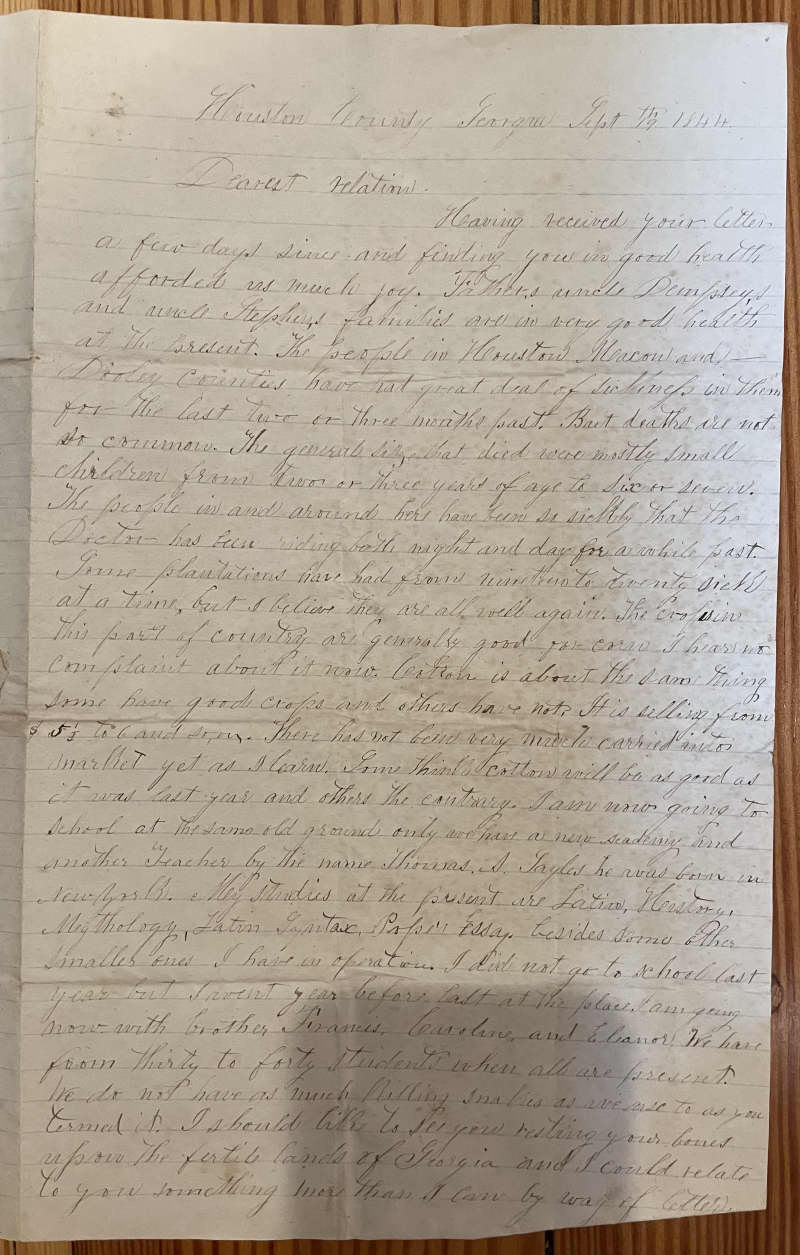 Houston County Georgia Sept 19th 1844.
Dearest relation.
Having received your letter
a few days since and finding you in good health
afforded us much joy. Fathers, uncle Dempsey,s
and uncle Stephen,s families are in very good health
at the present. The people in Houston Macon and
Dooley counties have had great deal of sickness in them
for the last two or three months past. But deaths are not
so common. The general size that died were mostly small
children from two or three years of age to six or seven.
The people in and around here have been so sickly that the
Doctor has been riding both night and day for a while past.
Some plantations have had from nineteen to twenty sick
at a time, but I believe they are all well again. The crops in
this part of country are generally good for corn I hear no
complaint about it now. Cotton is about the same thing
some have good crops and others have not. It is selling from
$ 5½ to 6 and so,on. There has not been very much carried into
market yet as I learn. Some think cotton will be as good as
it was last year and others the contrary. I am now going to
school at the same old ground only we have a new academy and
another Teacher by the name Thomas. A. Sayles he was born in
New York. My studies at the present are Latin, History,
Mythology, Latin Syntax, Pope's Essay besides some other
smaller ones I have in operation. I did not go to school last
year but I went year before last at the place I am going
now with brother Francis, Caroline, and Eleanor. We have
from thirty to forty students when all are present.
We do not have as much killing snakes as we use to as you
termed it. I should like to see you resting your bones
upon the fertile lands of Georgia and I could relate
to you something more than I can by way of letter.